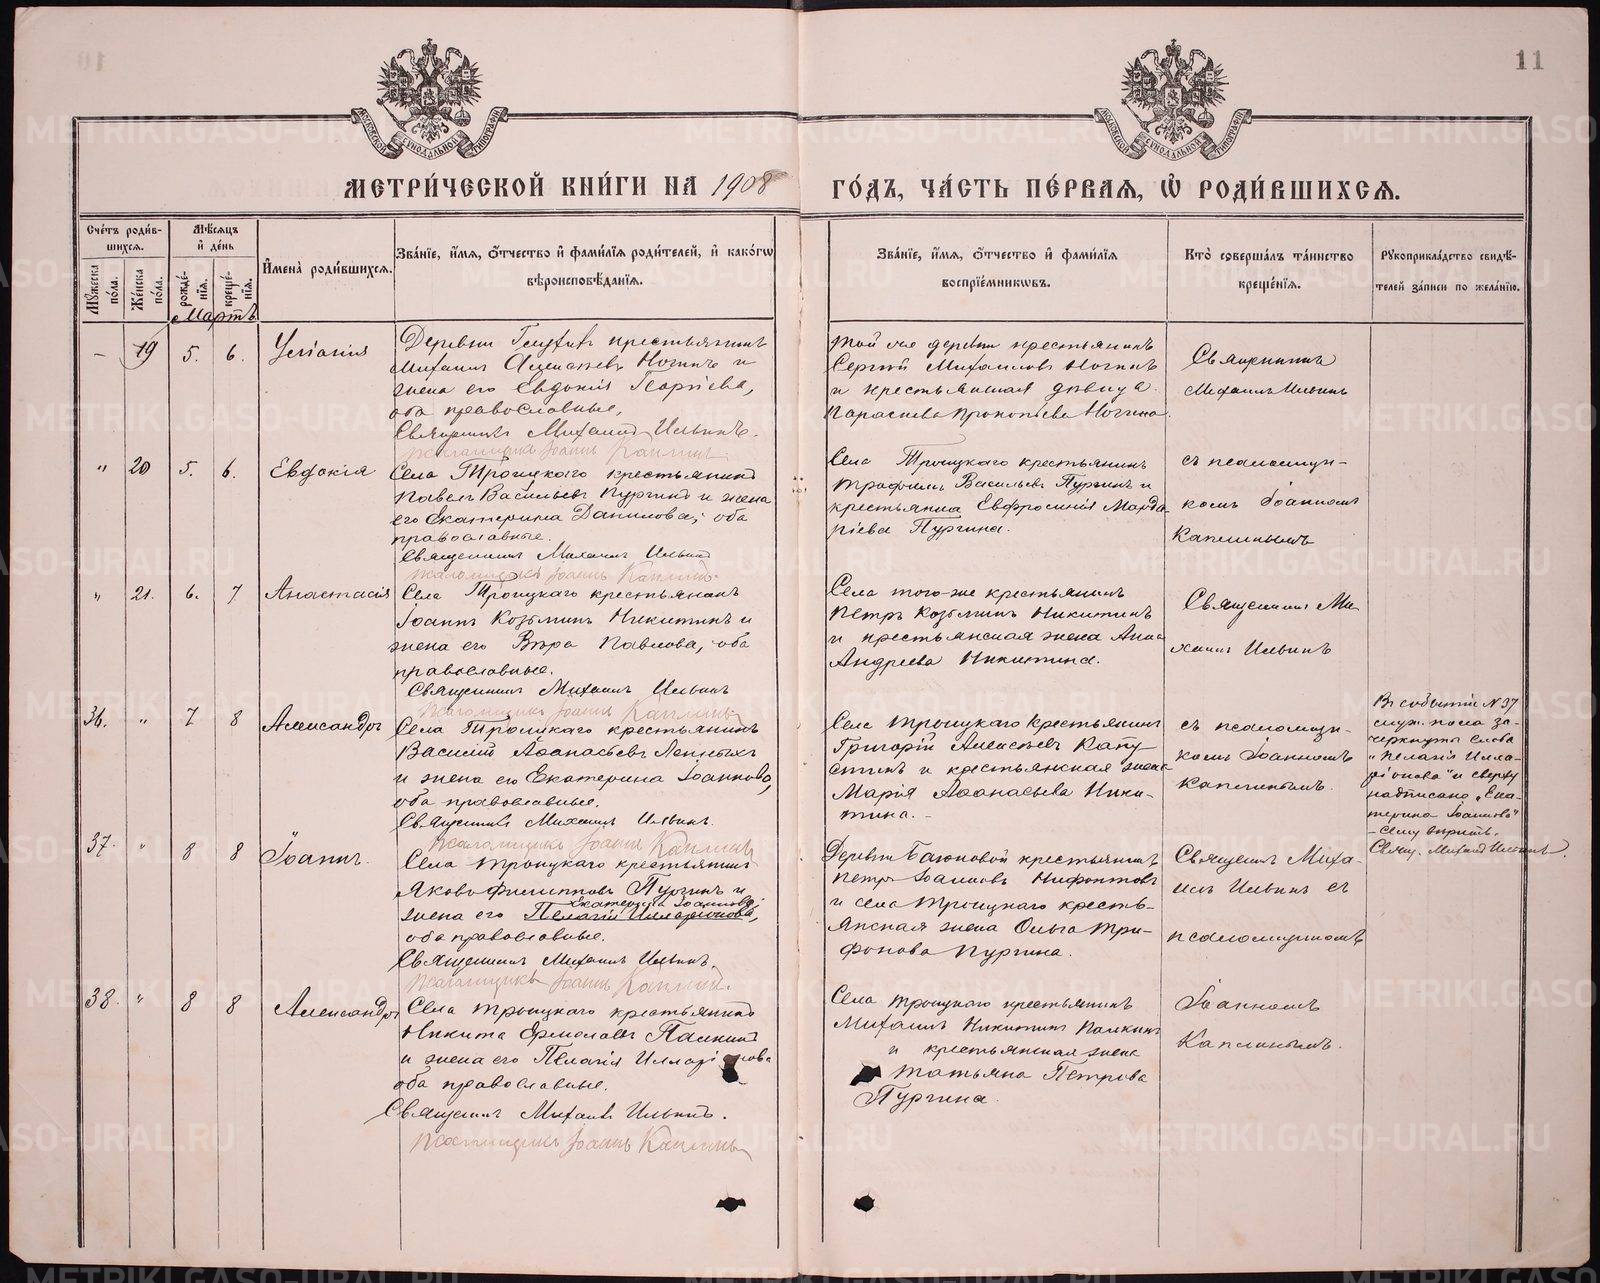 11
МЕТРИ́ЧЕСКОЙ КНИ́ГИ НА 1908
ГО́ДЪ, ЧА́СТЬ ПЕ́РВАЯ, Ѽ РОДИ́ВШИХСѦ.
Сче́тъ роди́в-
шихсѧ.
Мꙋжеска по́ла.
Женска по́ла.
Мѣсѧцъ
и҆ де́нь
рожде́-
нїѧ.
креще́-
нїѧ.
И҆мена̀ роди́вшихсѧ.
Зва́нїе, и҆́мѧ, ѻ҆́тчество и҆ фами́лїѧ роди́телей, и҆ како́гѡ
вѣроисповѣ́данїѧ.
Зва́нїе, и҆́мѧ, ѻ҆́тчество и҆ фами́лїѧ
воспрїе́мникѡвъ.
Кто̀ соверша́лъ та́инство
креще́нїѧ.
Рꙋкоприкла́дство свидѣ́-
телей за́писи по жела́нїю.
Мартъ
– 19 5. 6.
Деревни крестьянинъ
Михаилъ Алексѣевъ Ногинъ и
жена его Евдокія Георгіева,
оба православные.
Священникъ Михаилъ Ильинъ.
Псаломщикъ Іоаннъ Каплинъ
Той же деревни крестьянинъ
Сергій Михаиловъ Ногинъ
и крестьянская дѣвица
Параскева Прокопьева Ногина.
Священникъ
Михаилъ Ильинъ
" 20 5. 6. Евдокія
Села Троицкаго крестьянинъ
Павелъ Васильевъ Пургинъ и жена
его Екатерина Данилова, оба
православные.
Священникъ Михаилъ Ильинъ
Псаломщикъ Іоаннъ Каплинъ.
Села Троицкаго крестьянинъ
Трофимъ Васильевъ Пургинъ и
крестьянка Евфросинія Манда-
ріева Пургина.
съ псаломщи-
комъ Іоанномъ
Каплинымъ
" 21. 6. 7 Анастасія
Села Троицкаго крестьянинъ
Іоаннъ Козьминъ Никитинъ и
жена его Вѣра Павлова, оба
православные.
Священникъ Михаилъ Ильинъ
Псаломщикъ Іоаннъ Каплинъ
Села того-же крестьянинъ
Петръ Козьминъ Никитинъ
и крестьянская жена Анна
Андреева Никитина.
Священникъ Ми-
хаилъ Ильинъ
36. " 7 8 Александръ
Села Троицкаго крестьянинъ
Василій Аѳанасьевъ
и жена его Екатерина Іоаннова,
оба православные.
Священникъ Михаилъ Ильинъ.
Псаломщикъ Іоаннъ Каплинъ
Села Троицкаго крестьянинъ
Григорій Алексѣевъ Капу-
стинъ и крестьянская жена
Марія Аѳанасьева Ники-
тина. -
съ псаломщи-
комъ Іоанномъ
Каплинымъ.
Въ событіи № 37
муж. пола за-
черкнуты слова
"Пелагія Илла-
ріонова" и сверху
надписано "Ека-
терина Іоаннова"
- сему вѣрить.
Свящ. Михаилъ Ильинъ.
37. " 8 8 Іоаннъ.
Села Троицкаго крестьянинъ
Яковъ Филипповъ Пургинъ и
Екатерина Іоаннова,
жена его Пелагія Илларіонова,
оба православные.
Священникъ Михаилъ Ильинъ.
Псаломщикъ Іоаннъ Каплинъ.
Деревни Баюновой крестьянинъ
Петръ Іоанновъ Нифонтовъ
и села Троицкаго кресть-
янская жена Ольга Три-
фонова Пургина.
Священникъ Миха-
илъ Ильинъ съ
псаломщикомъ
38. " 8 8 Александръ
Села Троицкаго крестьянинъ
Никита Ермолаевъ Палкинъ
и жена его Пелагія Илларіонова
оба православные.
Священникъ Михаилъ Ильинъ.
Псаломщикъ Іоаннъ Каплинъ
Села Троицкаго крестьянинъ
Михаилъ Никитинъ Палкинъ
и крестьянская жена
Татьяна Петрова
Пургина.
Іоанномъ
Каплинымъ.
METRIKI.GASO-URAL.RU